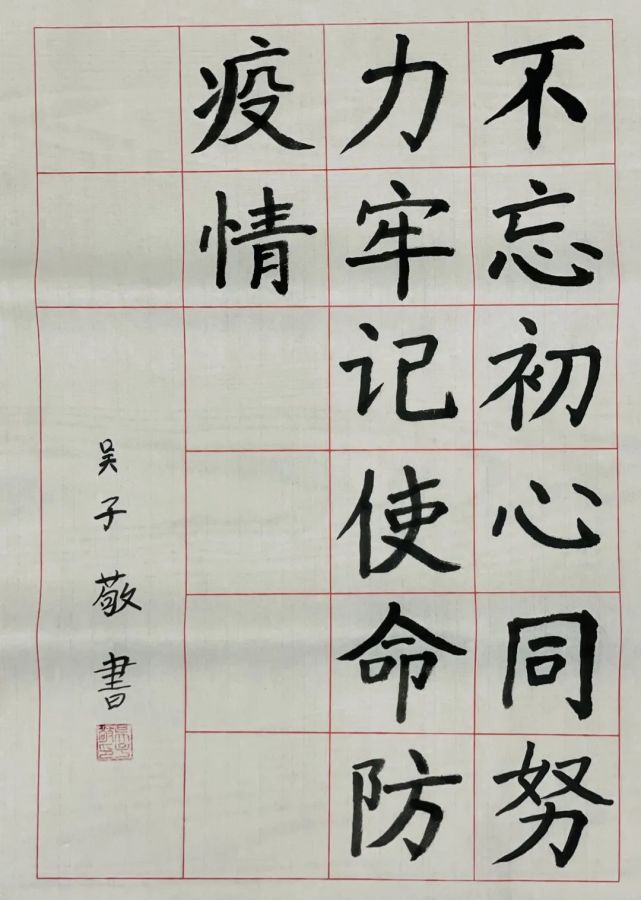 不忘初心同努
力牢记使命防
疫情
吴子敬書